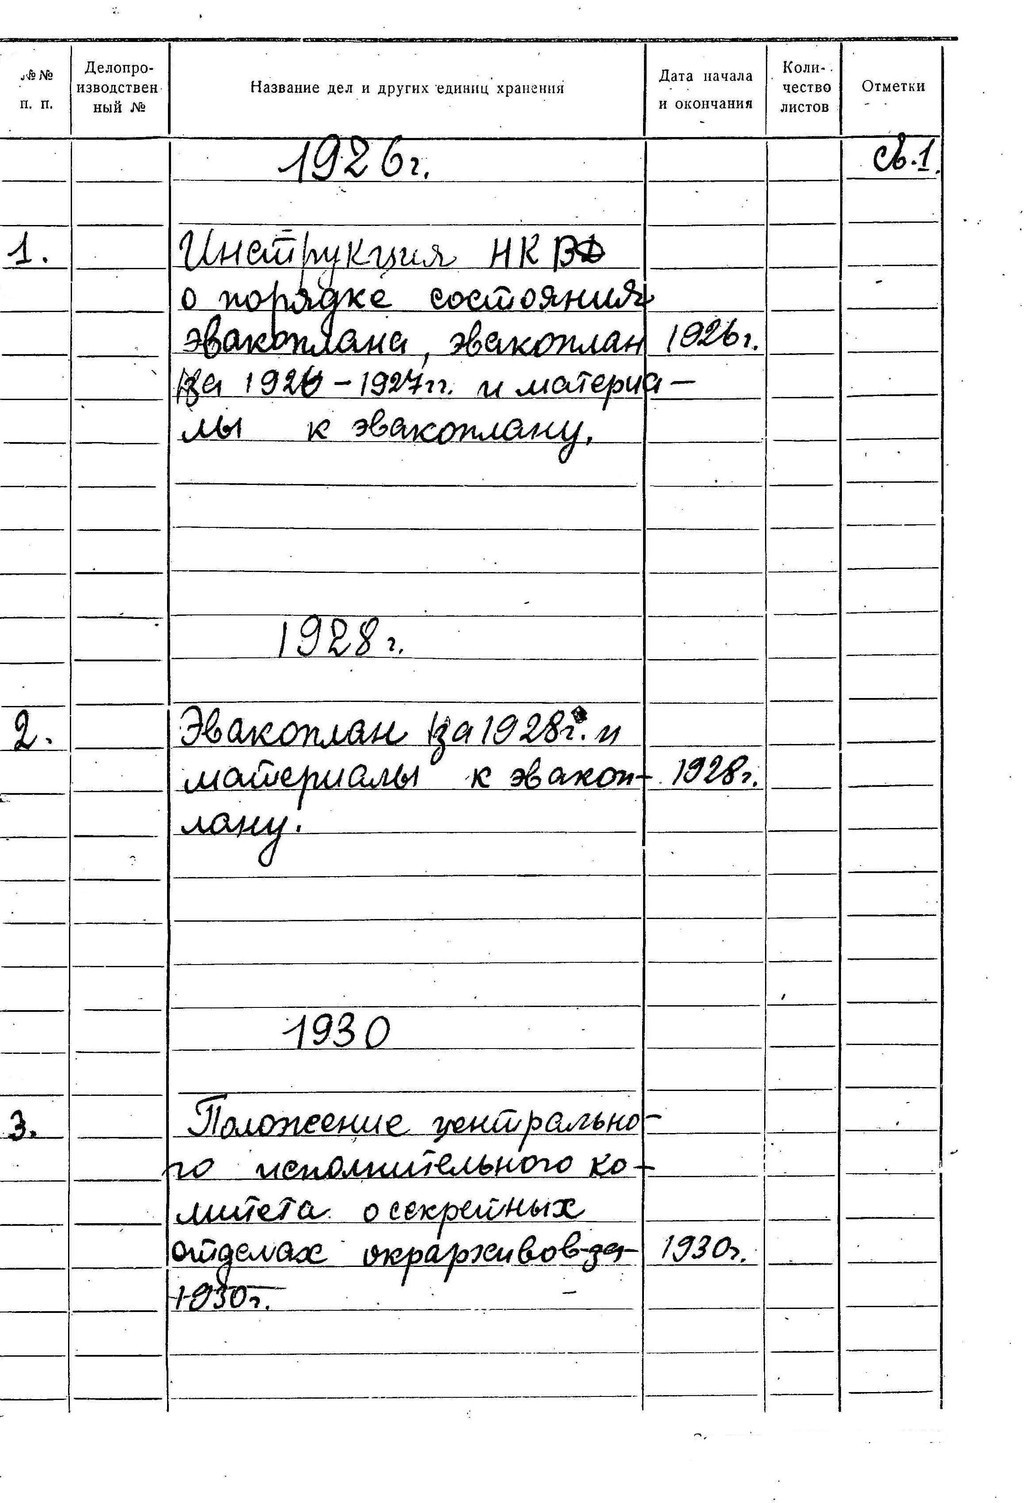 №№ п. п.
Делопро-
изводствен
ный №
Название дел и других единиц хранения
Дата начала
и окончания
Коли-
чество
листов
Отметки
1926г.
св.1.
1.
Инструкция НКВД
о порядке состояния
эвакоплана, эвакоплан 1926г.
за 1926-1927гг. и материа-
лы к эвакоплану.
1928г.
2.
Эвакоплан за 1928г. и
материалы к эвакоп- 1928г.
лану.
1930
3.
Положение центрально-
го исполнительного ко-
митета о секретных
отделах окрархивов за 1930г.
1930г.